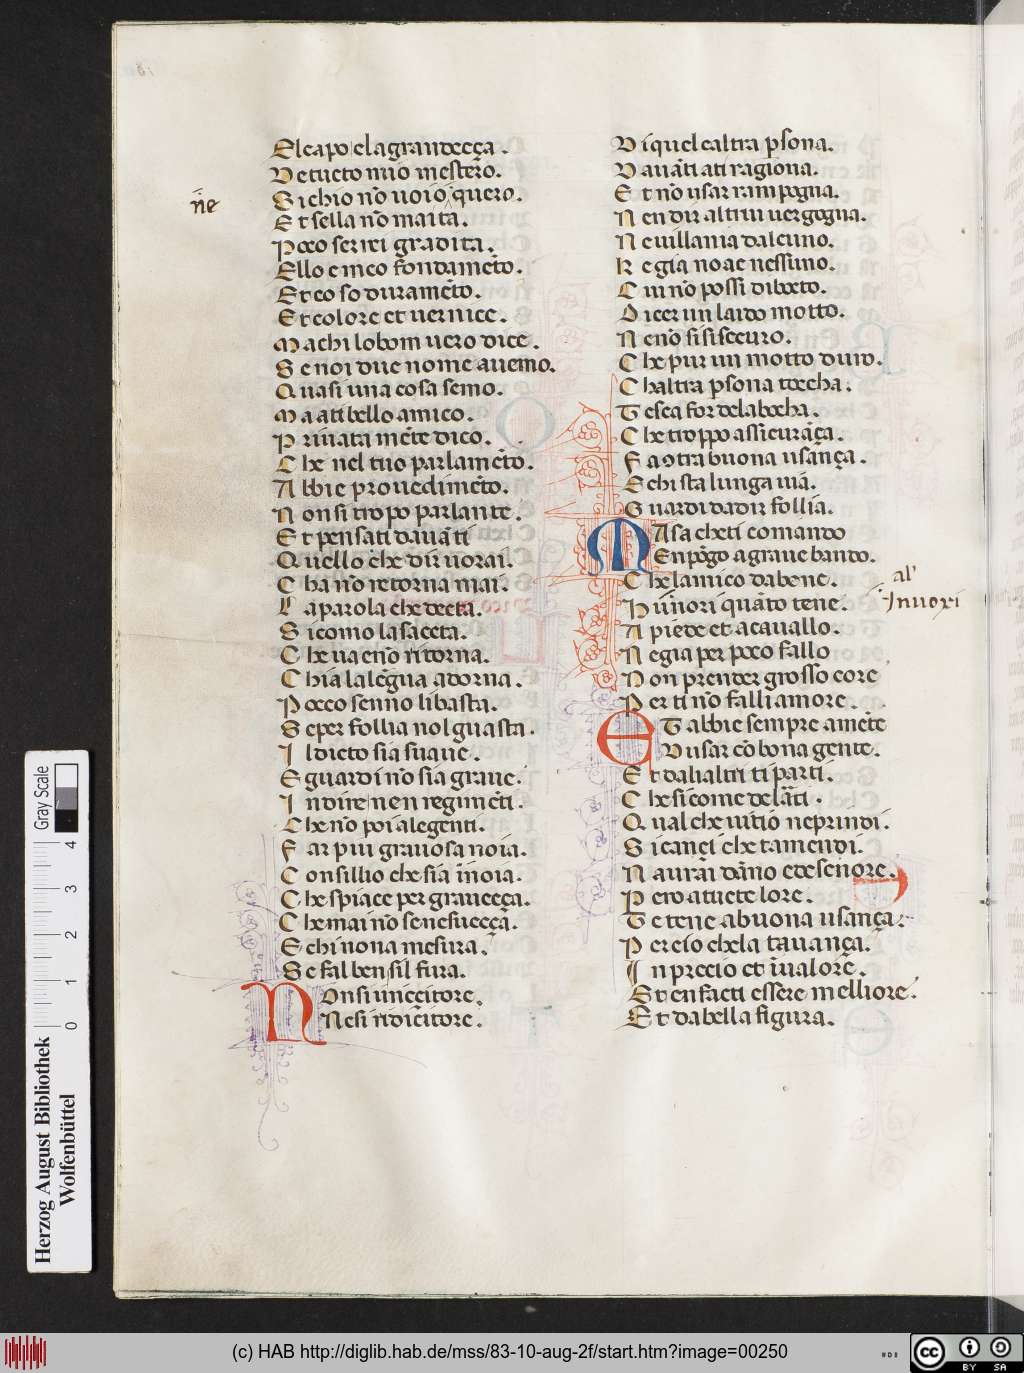 El capo el a grandecça.
De tucto mio mestero.
Sichio nō uoio q̄uero.
n̄e
Et sella nō mai ta.
Poco serrei gradita.
Ello e meo fondamēto.
Et eo so duramēto.
Et colore et uernice.
Ma chi lo bom uero dice.
Se noi due nome auemo.
Quasi una cosa semo.
Ma a ti bello amico.
Priuata mēte dico.
Che nel tuo parlamēto.
Abbie prouedimēto.
Non si tropo parlante.
Et pensati dauāti
Quello che dir uorai.
Cha nō retorna mai.
La parola che decta.
Sicomo la saceta.
Che ua e nō ritorna.
Chi a la lēgua adorna.
Poco senno li basta.
Se per follia nol guasta.
Il dicto sia suaue.
E guardi nō sia graue.
In dire nen regimēti.
Che nō poi a le genti.
Far piu grauosa noia.
Consillio che sia ī noia.
Che spiace per graueçça.
Che mai nō se ne sueçça.
E chi non a mesura.
Se fal ben sil fura.
Non si unicçitore.
Ne si ridicitore.
Di quel caltra p̄sona.
Dauāti a ti ragiona.
Et nō usar rampogna.
Nen dir altrui uergogna.
Ne uillania dalcuno.
Ke gia no ae nessuno.
Cui nō possi di bocto.
Dicer un laido motto.
Ne nō si si securo.
Che pur un motto duro.
Chaltra p̄sona tocha.
Tesca for de la bocha.
Che troppo assicurāça.
Fa 9tra buona usança.
E chi sta lunga uia.
Guardi da dir follia.
Ma sa che ti comando
E n pōgo a graue bando.
Che lamico da bene.
al'
Inuori
Hūnori quāto tene.
A piede et a cauallo.
Ne gia per poco fallo
Non prender grosso core
Per ti nō falli amore.
ET abbie sempre a mēte
Dusar cō bona gente.
Et dahaltri ti parti.
Che si come de lāti.
Qual che uitio ne prindi.
Si cançi che tamendi.
Naurai dāno e deseñore.
Pero a tucte lore.
Te tene a buona usança.
Per cio che la tauança.
In precio et ī ualore.
Et en facti essere melliore.
Et da bella figura.
Gray Scale
0 1 2 3 4
Herzog August Bibliothek
Wolfenbüttel
(c) HAB http://diglib.hab.de/mss/83-10-aug-2f/start.htm?image=00250
cc
BY SA